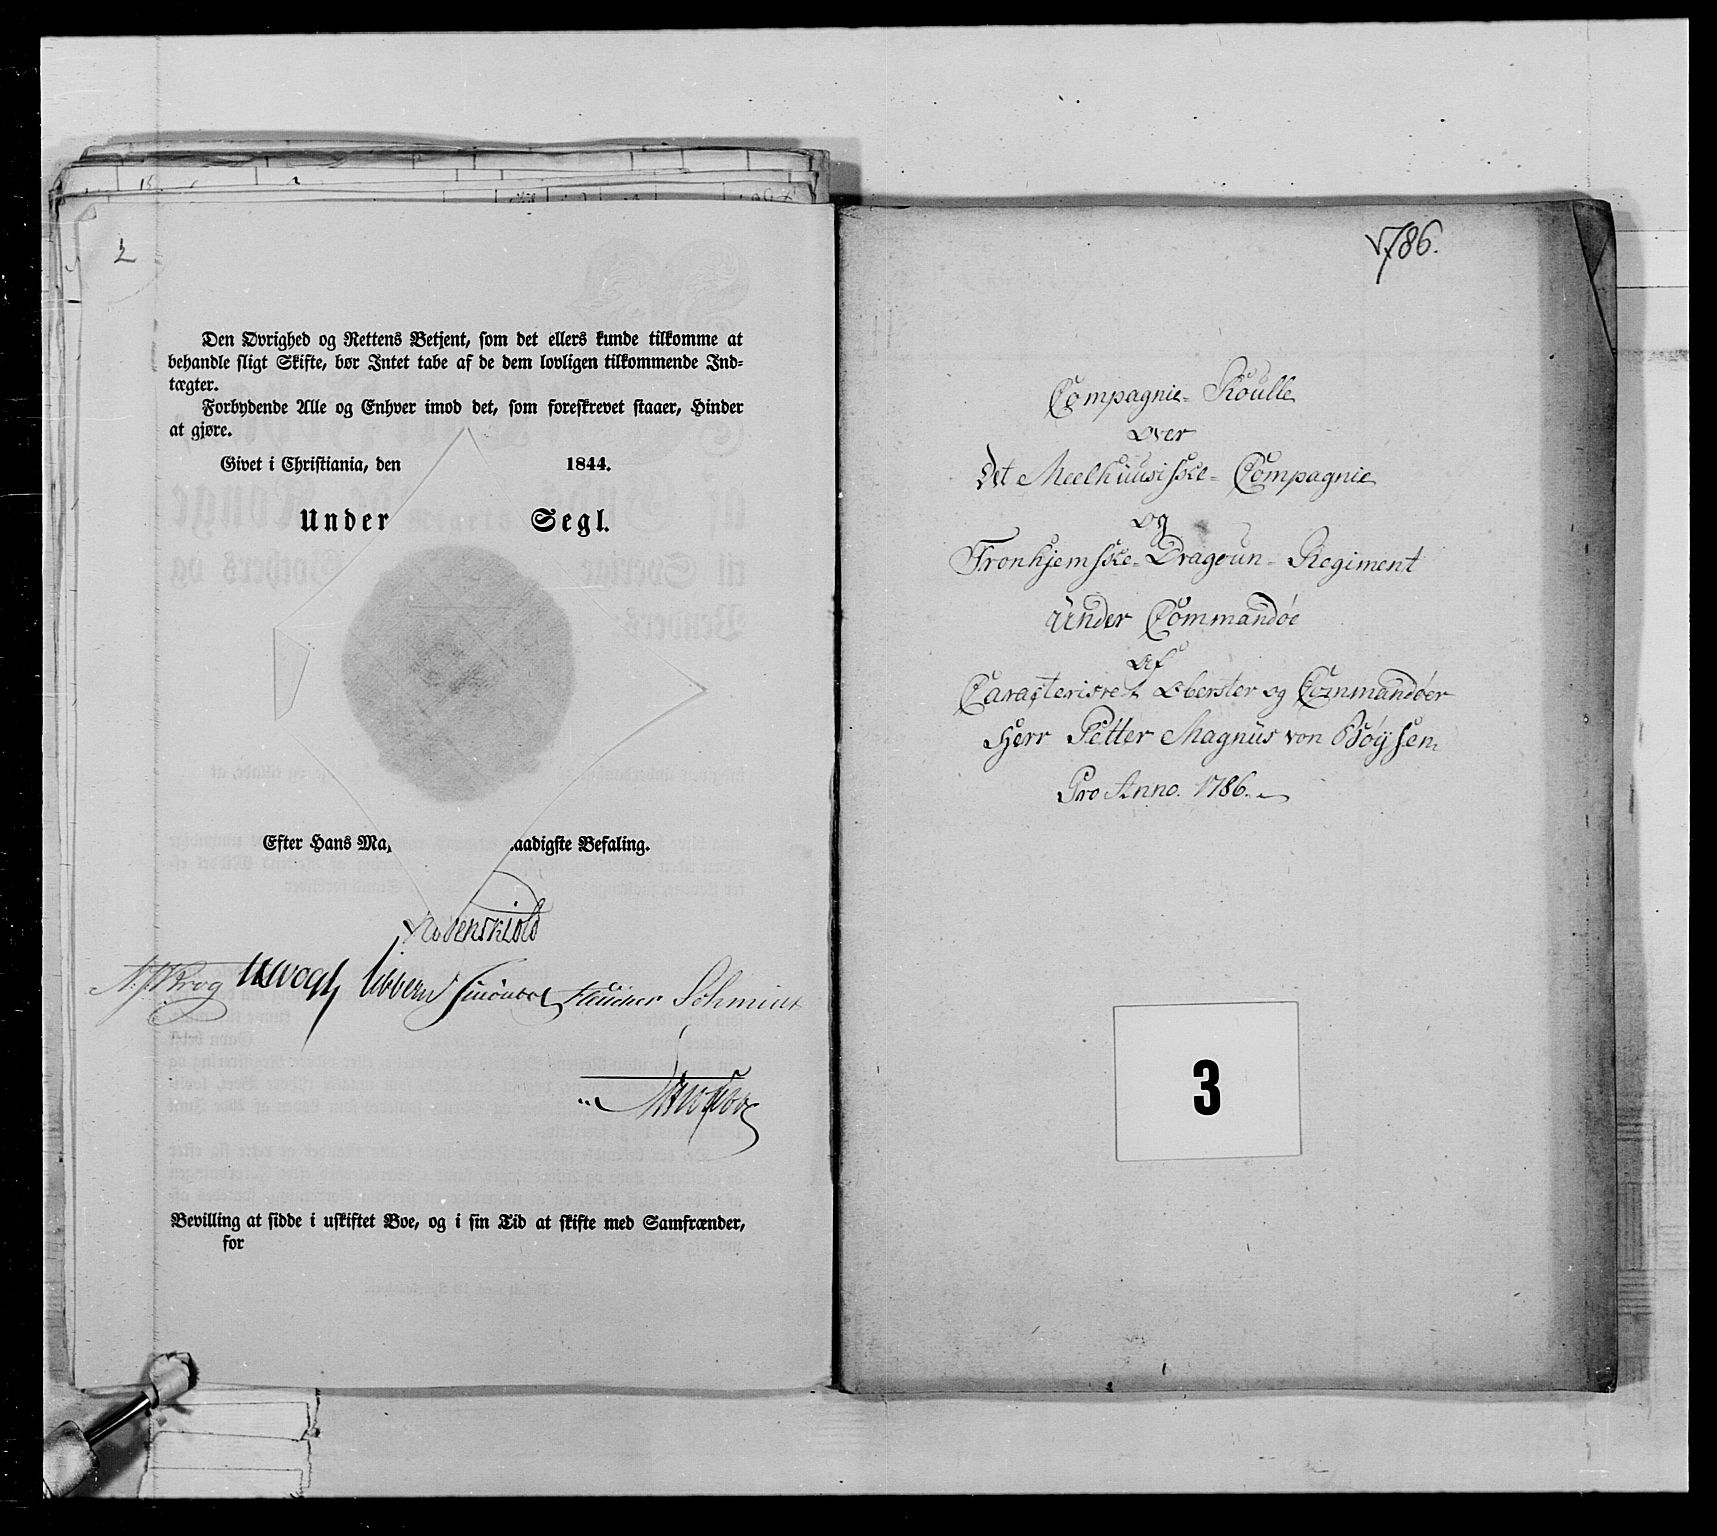 2
Den Øvrighed og Rettens Betjent, som det ellers kunde tilkomme at
behandle sligt Skifte, bør Intet tabe af de dem lovligen tilkommende Ind-
tægter.
Forbydende Alle og Enhver imod det, som foreskrevet staaer, Hinder
at gjøre.
Givet i Christiania, den 1844.
Under Segl.
Efter Hans Maj aadigste Befaling.
Løvenskiold
Krog Vogt Sibbern Schmidt
Bevilling at sidde i uskiftet Boe, og i sin Tid at skifte med Samfrænder,
for
1786.
Compagnie-Roulle
Over
Det Meelhuusiske-Compagnie
Og
Tronhjemske-Dragoun-Regiment
Under Commandoe
Af
Caracteriseret Oberster og Commandøer
Herr Petter Magnus von Böÿsen
Pro Anno. 1786.
3